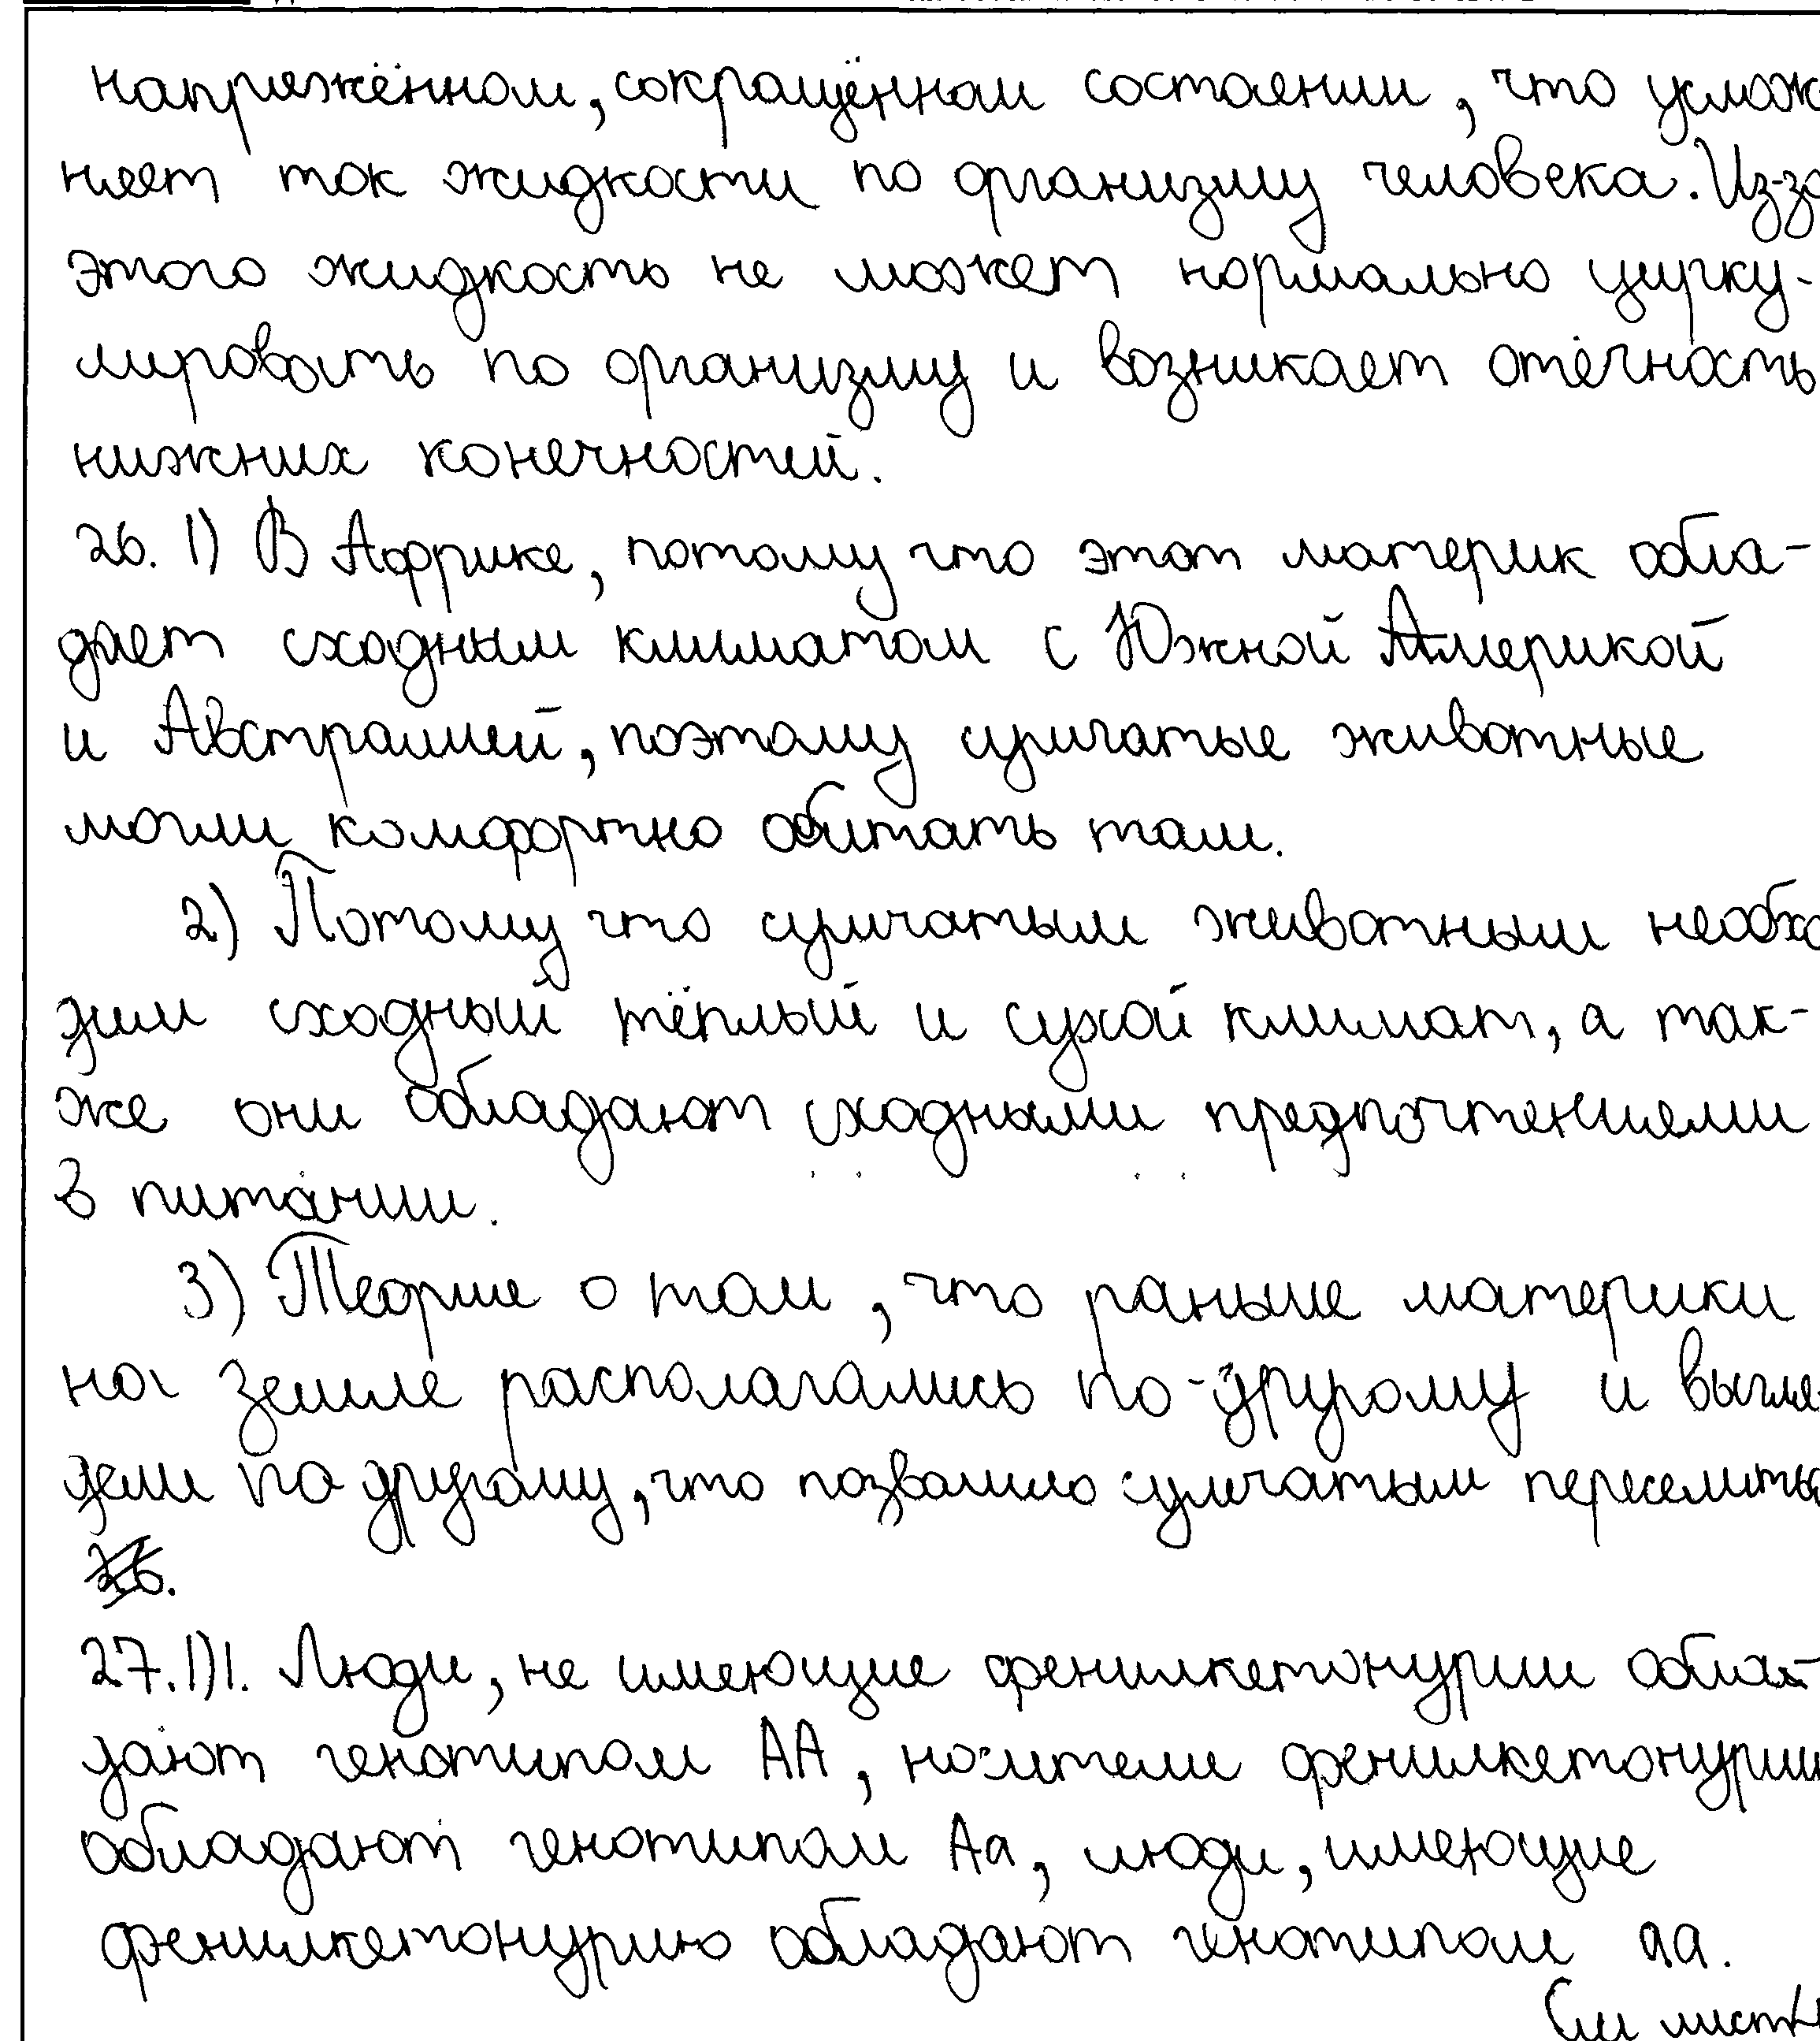 напряжённом, сокращённом состоянии, что услож
няет ток жидкости по организму человека. Из-за
этого жидкость не может нормально цирку-
лировать по организму и возникает отёчность
нижних конечностей.
26. 1) В Африке, потому что этот материк обла-
дает сходным климатом с Южной Америкой
и Австралией, поэтому сумчатые животные
могли комфортно обитать там.
2) Потому что сумчатым животным необхо
дим сходный тёплый и сухой климат, а так-
же они обладают сходными предпочтениями
в питании.
3) Теория о том, что раньше материки
на Земле располагались по-другому и выгля
дели по другому, что позволило сумчатым переселить
26.
27.1)1. Люди, не имеющие фенилкетонурии обла-
дают генотипом АА, носители фенилкетонурии
обладают генотипом Аа, люди, имеющие
фенилкетонурию обладают генотипом аа.
См лист